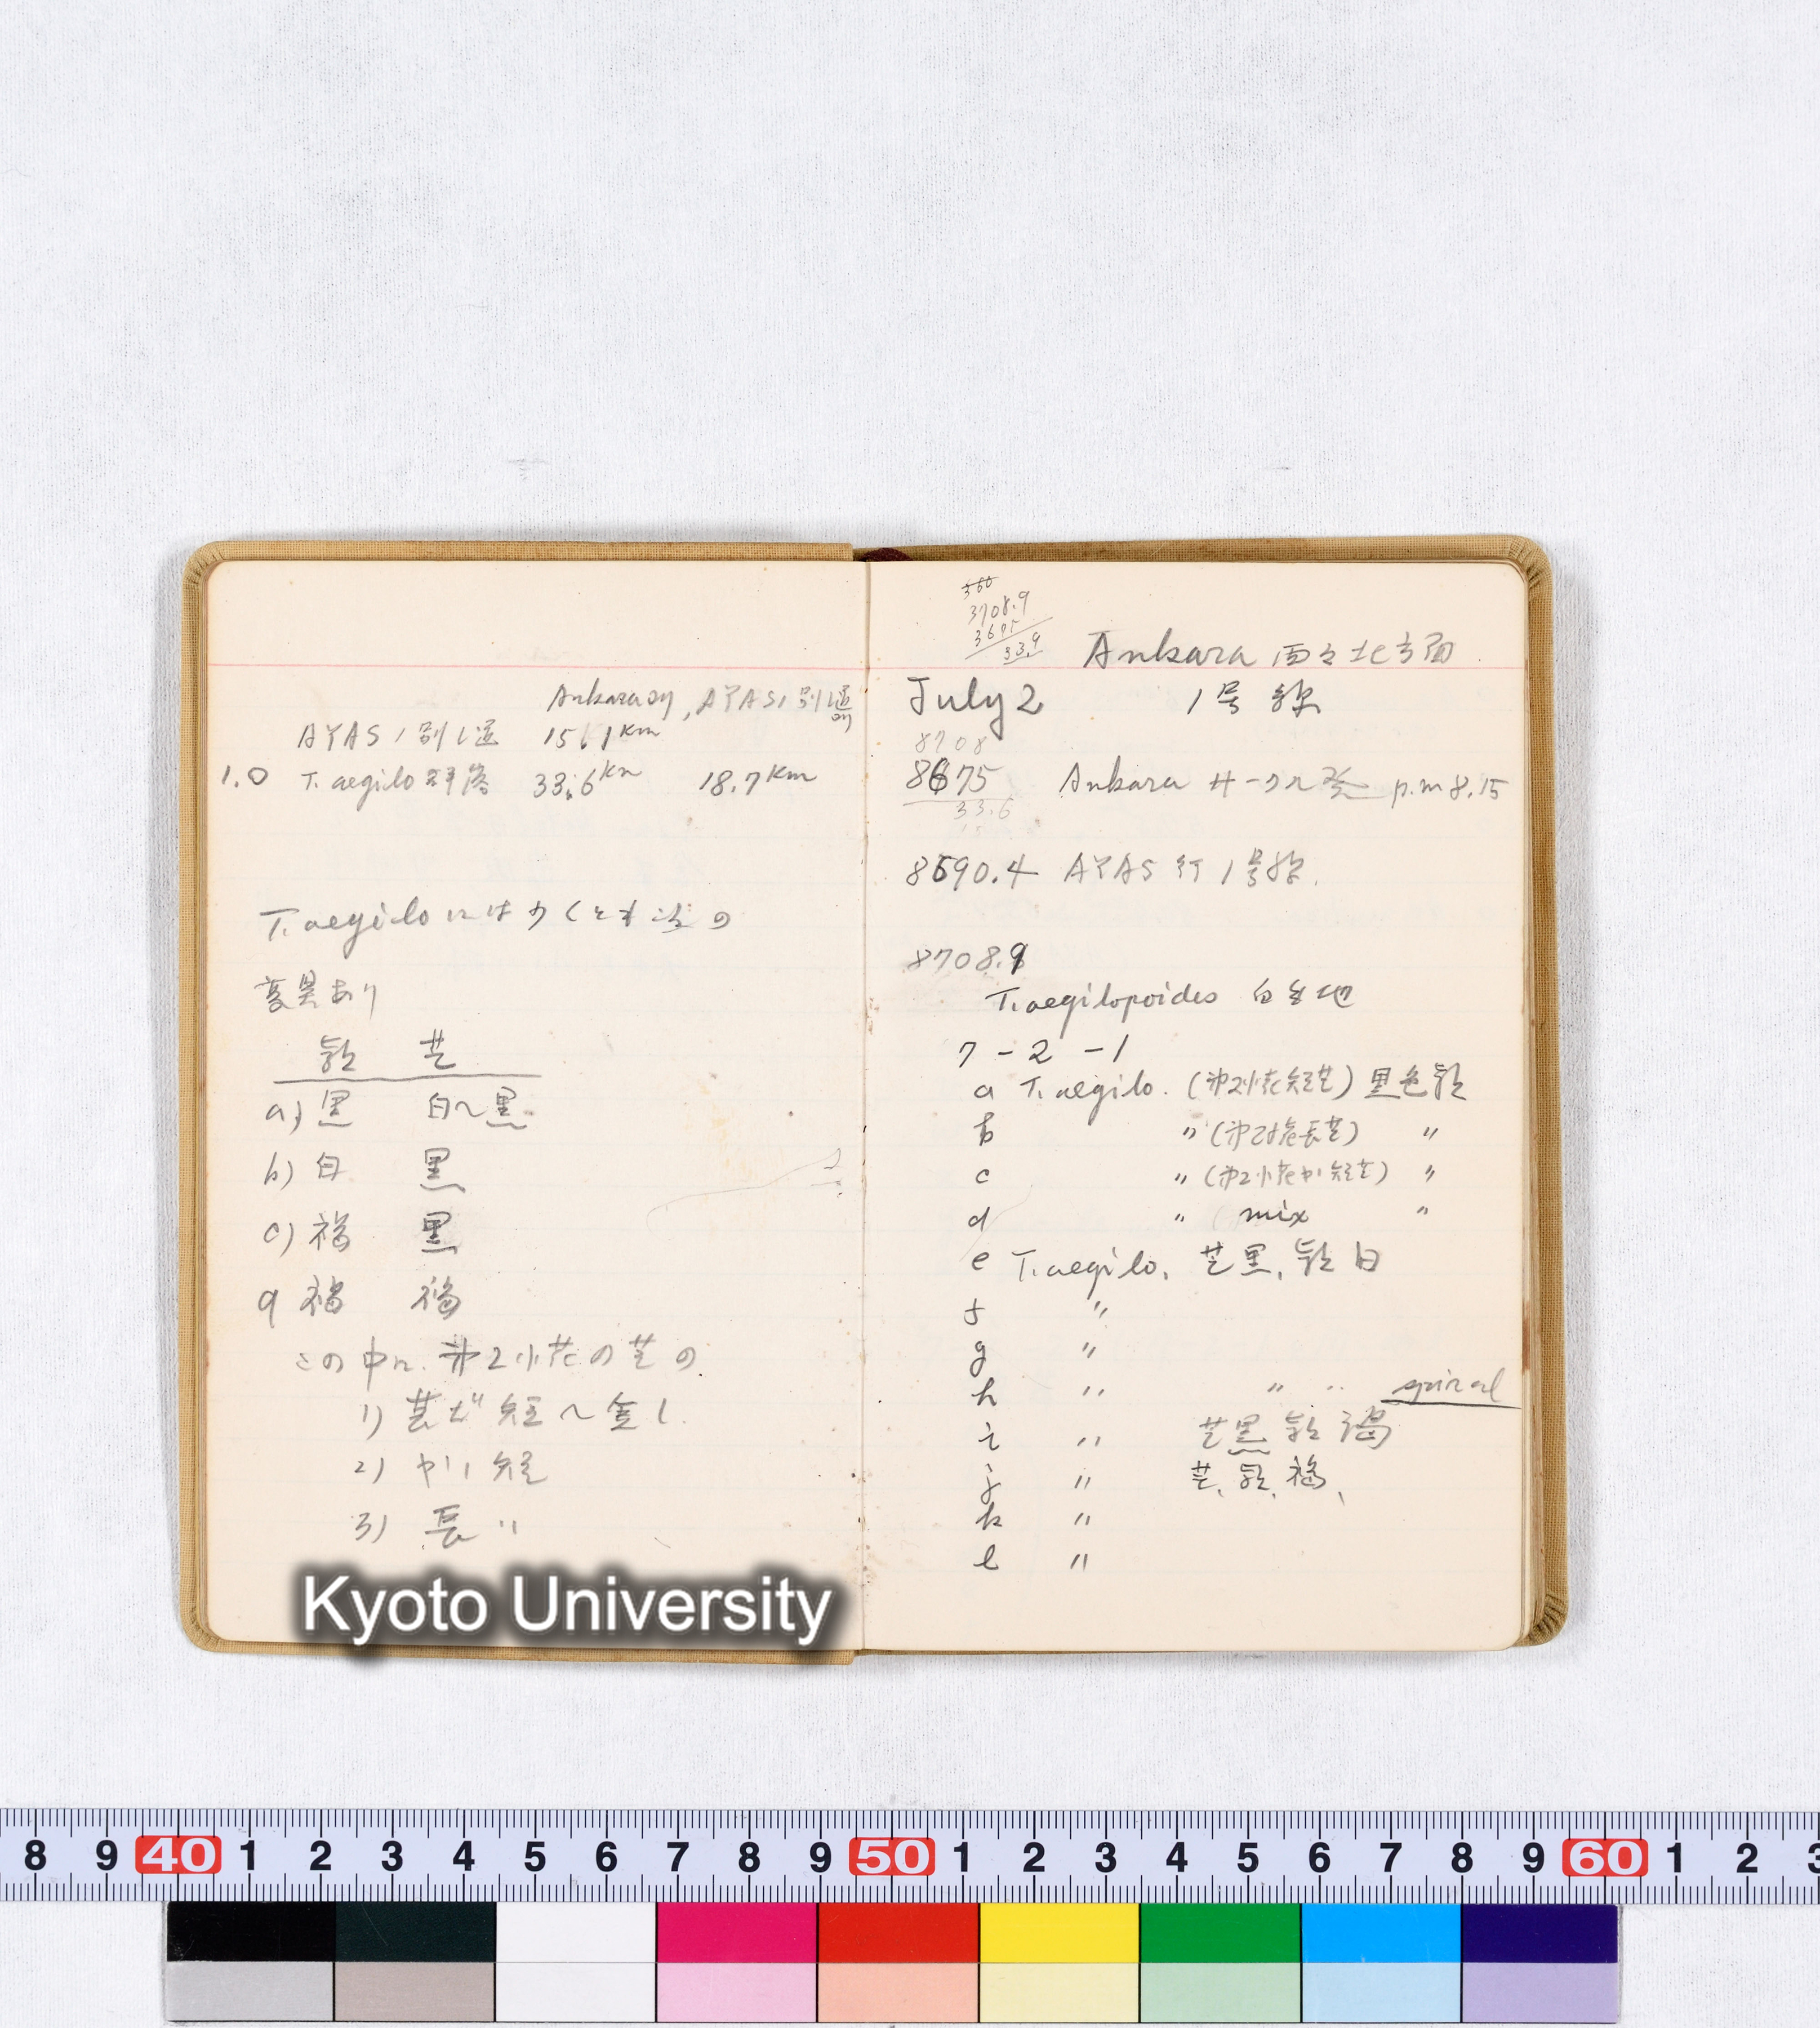 Ankaraヨリ, AYASノ別レ道ヨリ
AYASノ別レ道 15.1 km
1.0 T. aegilo 群落 33.6 km 18.7 km
T. aegiloには少くとも次の
変異あり
穎 芒
a) 黒 白〜黒
b) 白 黒
c) 褐 黒
d 褐 褐
この中に、第2小花の芒の
1) 甚だ短〜無し
2) やゝ短
3) 長 〃
Kyoto University
360
3708.9
3675
33.9
Ankara 西々北方面
July 2 1号線
8708
8675 Ankara 発 p.m 8.15
33.6
15
8690.4 AYAS行 1号線.
8708.9
T. aegilopoides 自生地
7-2-1
a T. aegilo. (第2小花短芒) 黒色穎
b 〃 (第2小花長芒) 〃
c 〃 (第2小花やゝ短芒) 〃
d 〃 ( mix 〃
e T. aegilo. 芒黒, 穎白
f 〃
g 〃
h 〃 〃 〃 spiral
i 〃 芒黒 穎 褐
j 〃 芒, 穎, 褐,
k 〃
l 〃
8 9 40 1 2 3 4 5 6 7 8 9 50 1 2 3 4 5 6 7 8 9 60 1 2 3